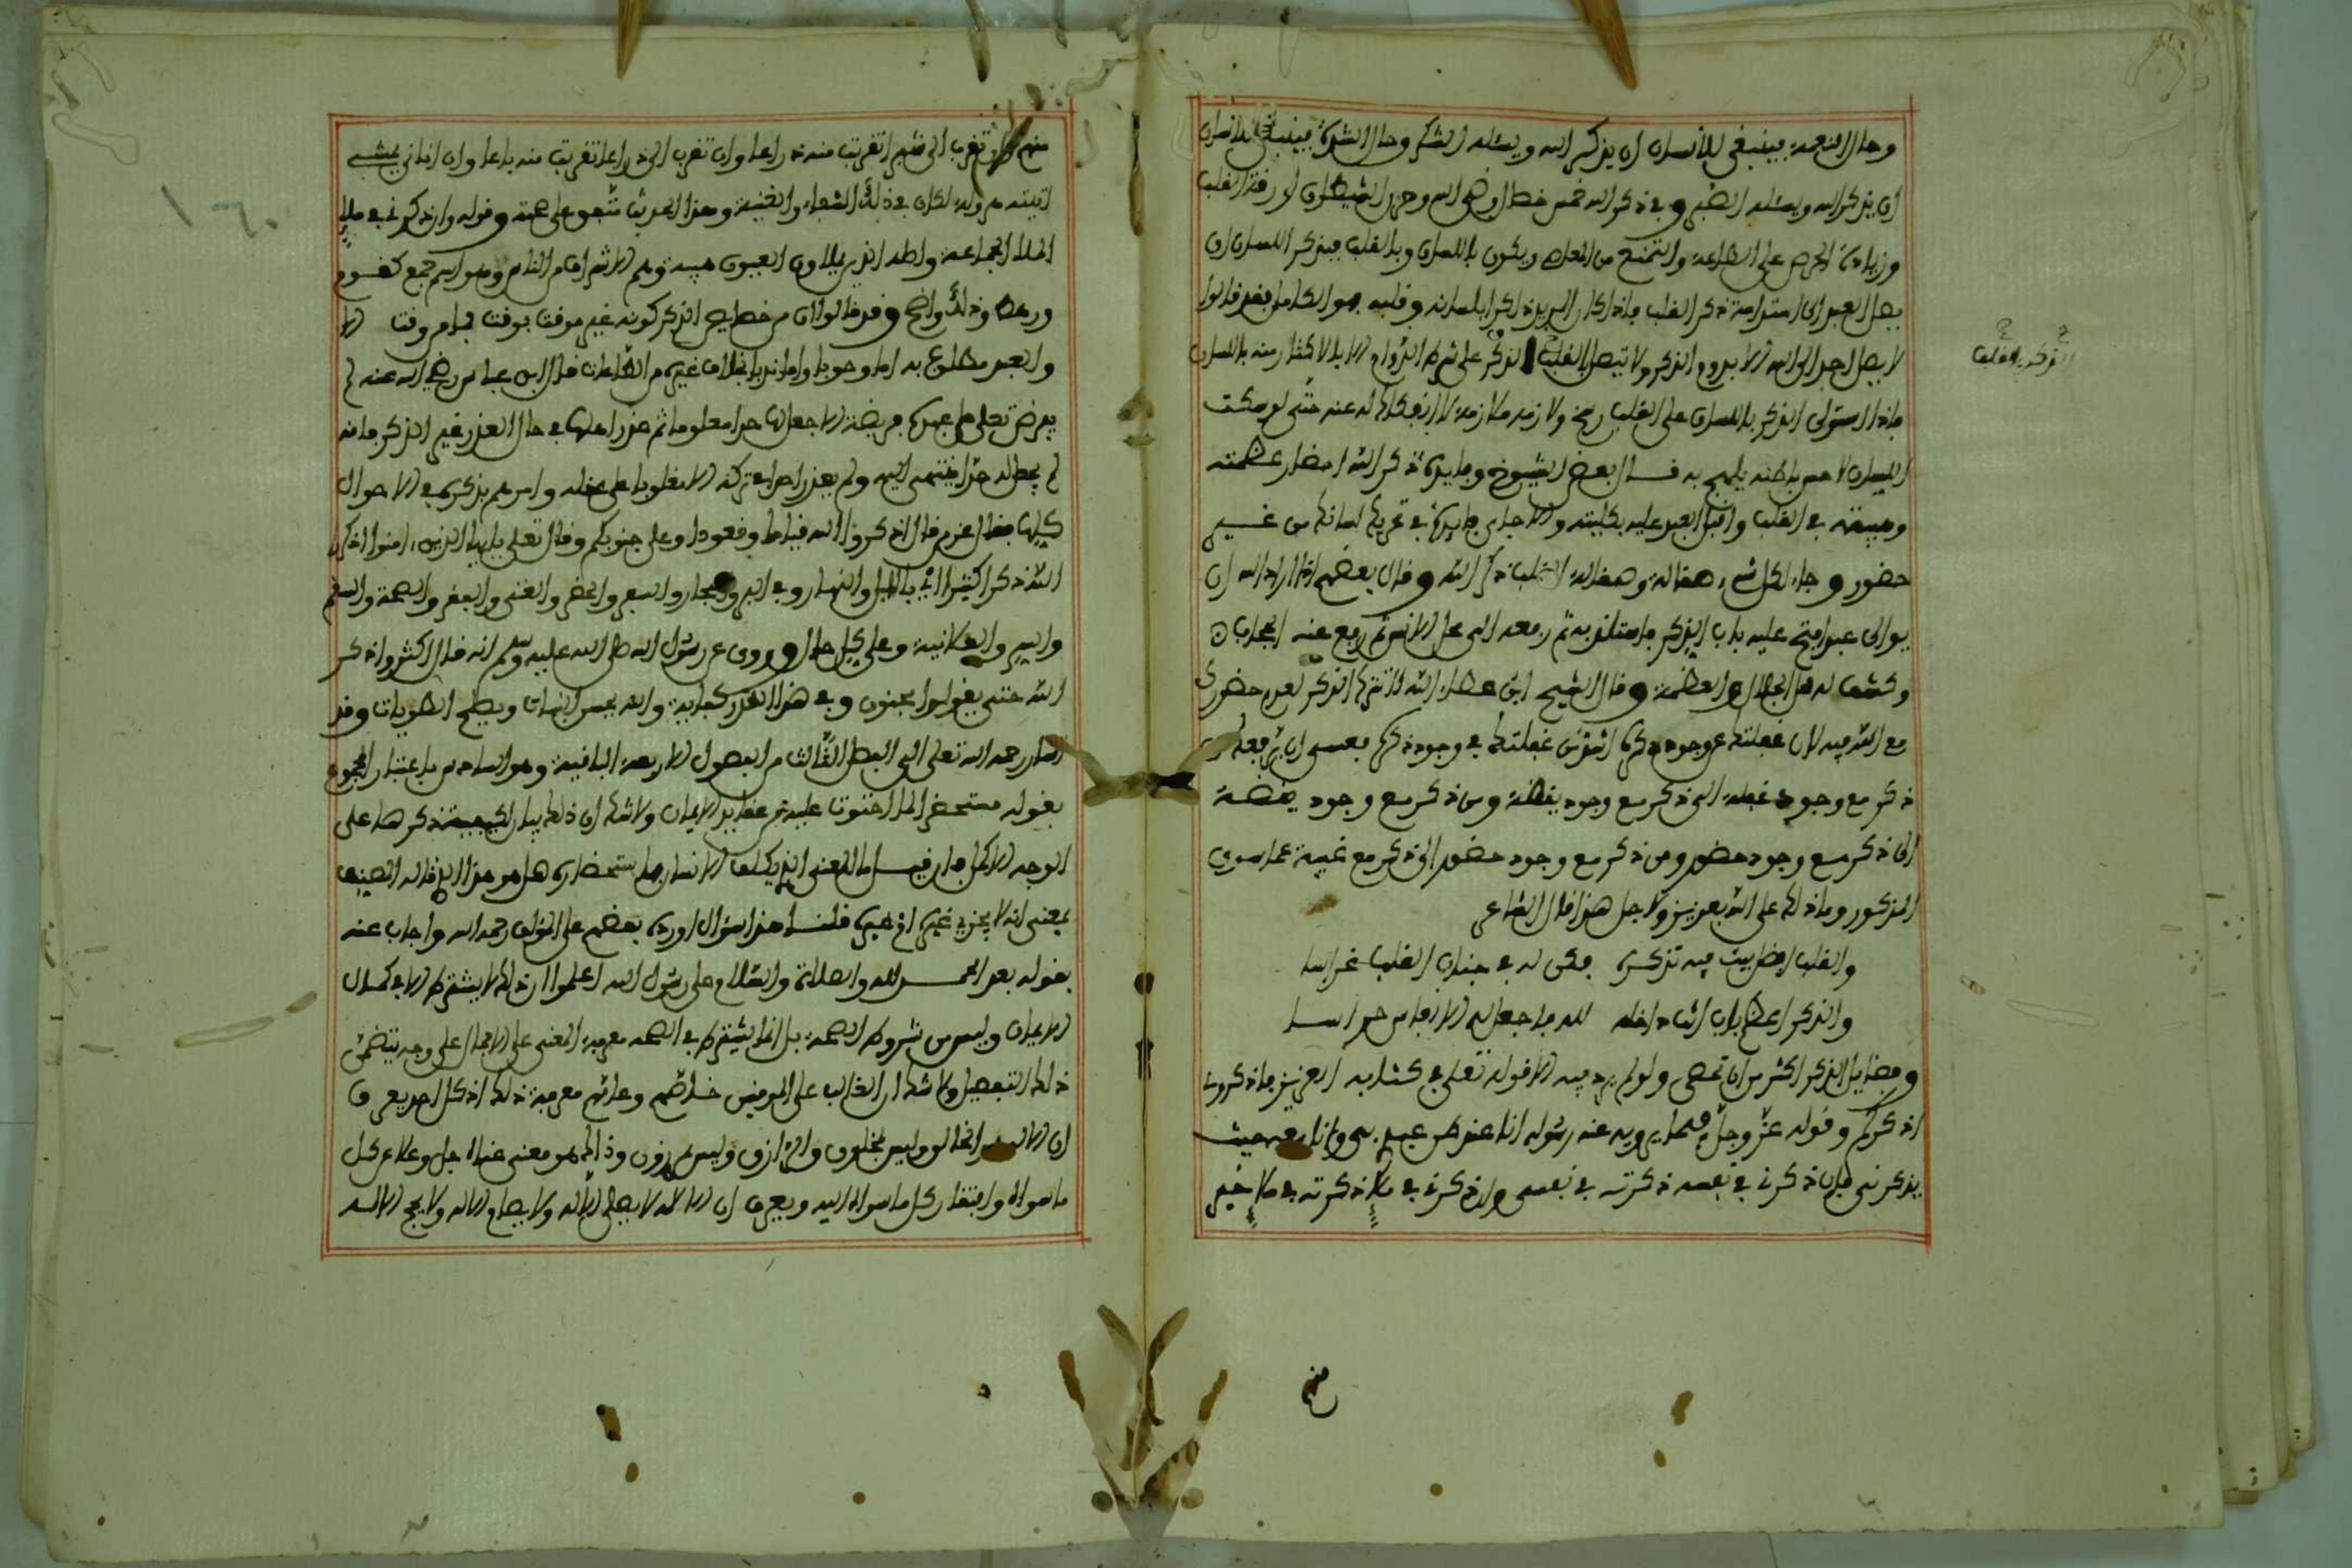 وحال النعمة فينبغي للانسان ان يذكر الله ويسئله الشكر وحال الشدة فينبغي للانسان
ان يذكر الله ويسئله الصبر وفي ذكر الله خمس خصال رضى الله وحرز الشيطان او رقة القلب
وزيادة الحرص على الطاعة والتمنع من المعاصي ويكون باللسان وبالقلب فيذكر اللسان ان
يصل العبد الى استدامة ذكر القلب فاذا كان العبد ذاكرا بلسانه وقلبه هو الكامل فقد قالوا
لا يصل احد الى الله الا بدوام الذكر ولا يتصل القلب الذكر على شرط الدوام الا بالاكثار منه باللسان
فاذا استولى الذكر باللسان على القلب رسخ ولازمه ملازمة لا انفكاك له عنه حتى لو سكت
اللسان لاحس باطنه يلهج به قال بعض الشيوخ وفايدة ذكر الله احضار عظمته
وهيبته في القلب واقبل العبد عليه بكليته والا فاي فايدة في تحريك لسانك من غير
حضور وجاء لكل شيء صقالة وصقالة القلب ذكر الله وقال بعضهم اذا اراد الله ان
يوالي عبدا فتح عليه باب الذكر فاستلذ به ثم رفعه الى محل الانس ثم رفع عنه الحجاب
وكشف له عن الجلال والعظمة وقال الشيخ ابن عطاء الله لا تترك الذكر لعدم حضورك
مع الله فيه لان غفلتك عن وجود ذكره اشد من غفلتك في وجود ذكره فعسى ان يرفعك من
ذكر مع وجود غفلة الى ذكر مع وجود يقظة ومن ذكر مع وجود يقظة
الى ذكر مع وجود حضور ومن ذكر مع وجود حضور الى ذكر مع غيبة عما سوى
المذكور وما ذلك على الله بعزيز ولاجل هذا قال الشاعر
والقلب افضل بيت فيه تذكره فكن له في جنان القلب غراسا
والذكر اعظم باب انت داخله لله فاجعل له الانفاس حراسا
وفضايل الذكر اكثر من ان تحصى ولو لم يرد فيه الا قوله تعالى في كتابه العزيز فاذكروني
اذكركم وقوله عز وجل فيما يرويه عنه رسوله انا عند ظن عبدي بي وانا معه حيث
يذكرني فان ذكرني في نفسه ذكرته في نفسي وان ذكرني في ملإ ذكرته في ملإ خير
منهم
الذكر بالقلب
منهم وان تقرب الي شبرا تقربت منه ذراعا وان تقرب الي ذراعا تقربت منه باعا وان اتاني يمشي
اتيته هرولة لكان في ذلك الشفاء والغنية وهذا الحديث متفق على صحته وقوله وان ذكرني في ملإ
الملا الجماعة واصله الذين يملاون العيون هيبة وهم الاشراف من الناس وهو اسم جمع كقوم
ورهط وذلك واضح وقد قالوا ان من خصايص الذكر كونه غير موقت بوقت فما من وقت الا
والعبد مطلوب به اما وجوبا واما ندبا بخلاف غيره من الطاعات قال ابن عباس رضي الله عنه لم
يفرض تعالى على عباده فريضة الا جعل لها حدا معلوما ثم عذر اهلها في حال العذر غير الذكر فانه
لم يجعل له حدا ينتهى اليه ولم يعذر احدا في تركه الا مغلوبا على عقله وامرهم بذكره في الاحوال
كلها فقال عز من قال اذكروا الله قياما وقعودا وعلى جنوبكم وقال تعالى يا ايها الذين امنوا اذكروا
الله ذكرا كثيرا اي بالليل والنهار وفي البر والبحار والسفر والحضر والغنى والفقر والصحة والسقم
والسر والعلانية وعلى كل حال وروي عن رسول الله صلى الله عليه وسلم انه قال اكثروا ذكر
الله حتى يقولوا مجنون وفي هذا القدر كفاية والله يحسن النيات ويصلح الطويات وقد
اشار رحمه الله تعالى الى الفصل الثالث من الفصول الاربعة الباقية وهو السادس باعتبار المجموع
بقوله مستحضرا لما احتوت عليه من عقايد الايمان ولا شك ان ذلك بيان لكيفية ذكرها على
الوجه الاكمل فان قيل ما المعنى الذي يكلف الانسان باستحضاره هل هو هذا الذي قاله المصنف
بمعنى انه لا يجزيه غيره ام غيره قلنا هذا سؤال اورده بعضهم على المؤلف رحمه الله واجاب عنه
بقوله بعد الحمد لله والصلاة والسلام على رسول الله اعلموا ان ذلك لا يشترط الا في كمال
الايمان وليس من شروط الصحة بل انما يشترط في الصحة معرفة المعنى على الاجمال على وجه يتضمن
ذلك التفصيل ولا شك ان الغالب على المومنين خاصتهم وعامتهم معرفة ذلك اذ كل احد يعرف
ان الاله هو الخالق وليس بمخلوق والرازق وليس بمرزوق وذلك هو معنى غناه جل وعلا عن كل
ما سواه وافتقار كل ما سواه اليه ويعرف ان الاله لا يصلى الا له ولا يصام الا له ولا يحج الا له